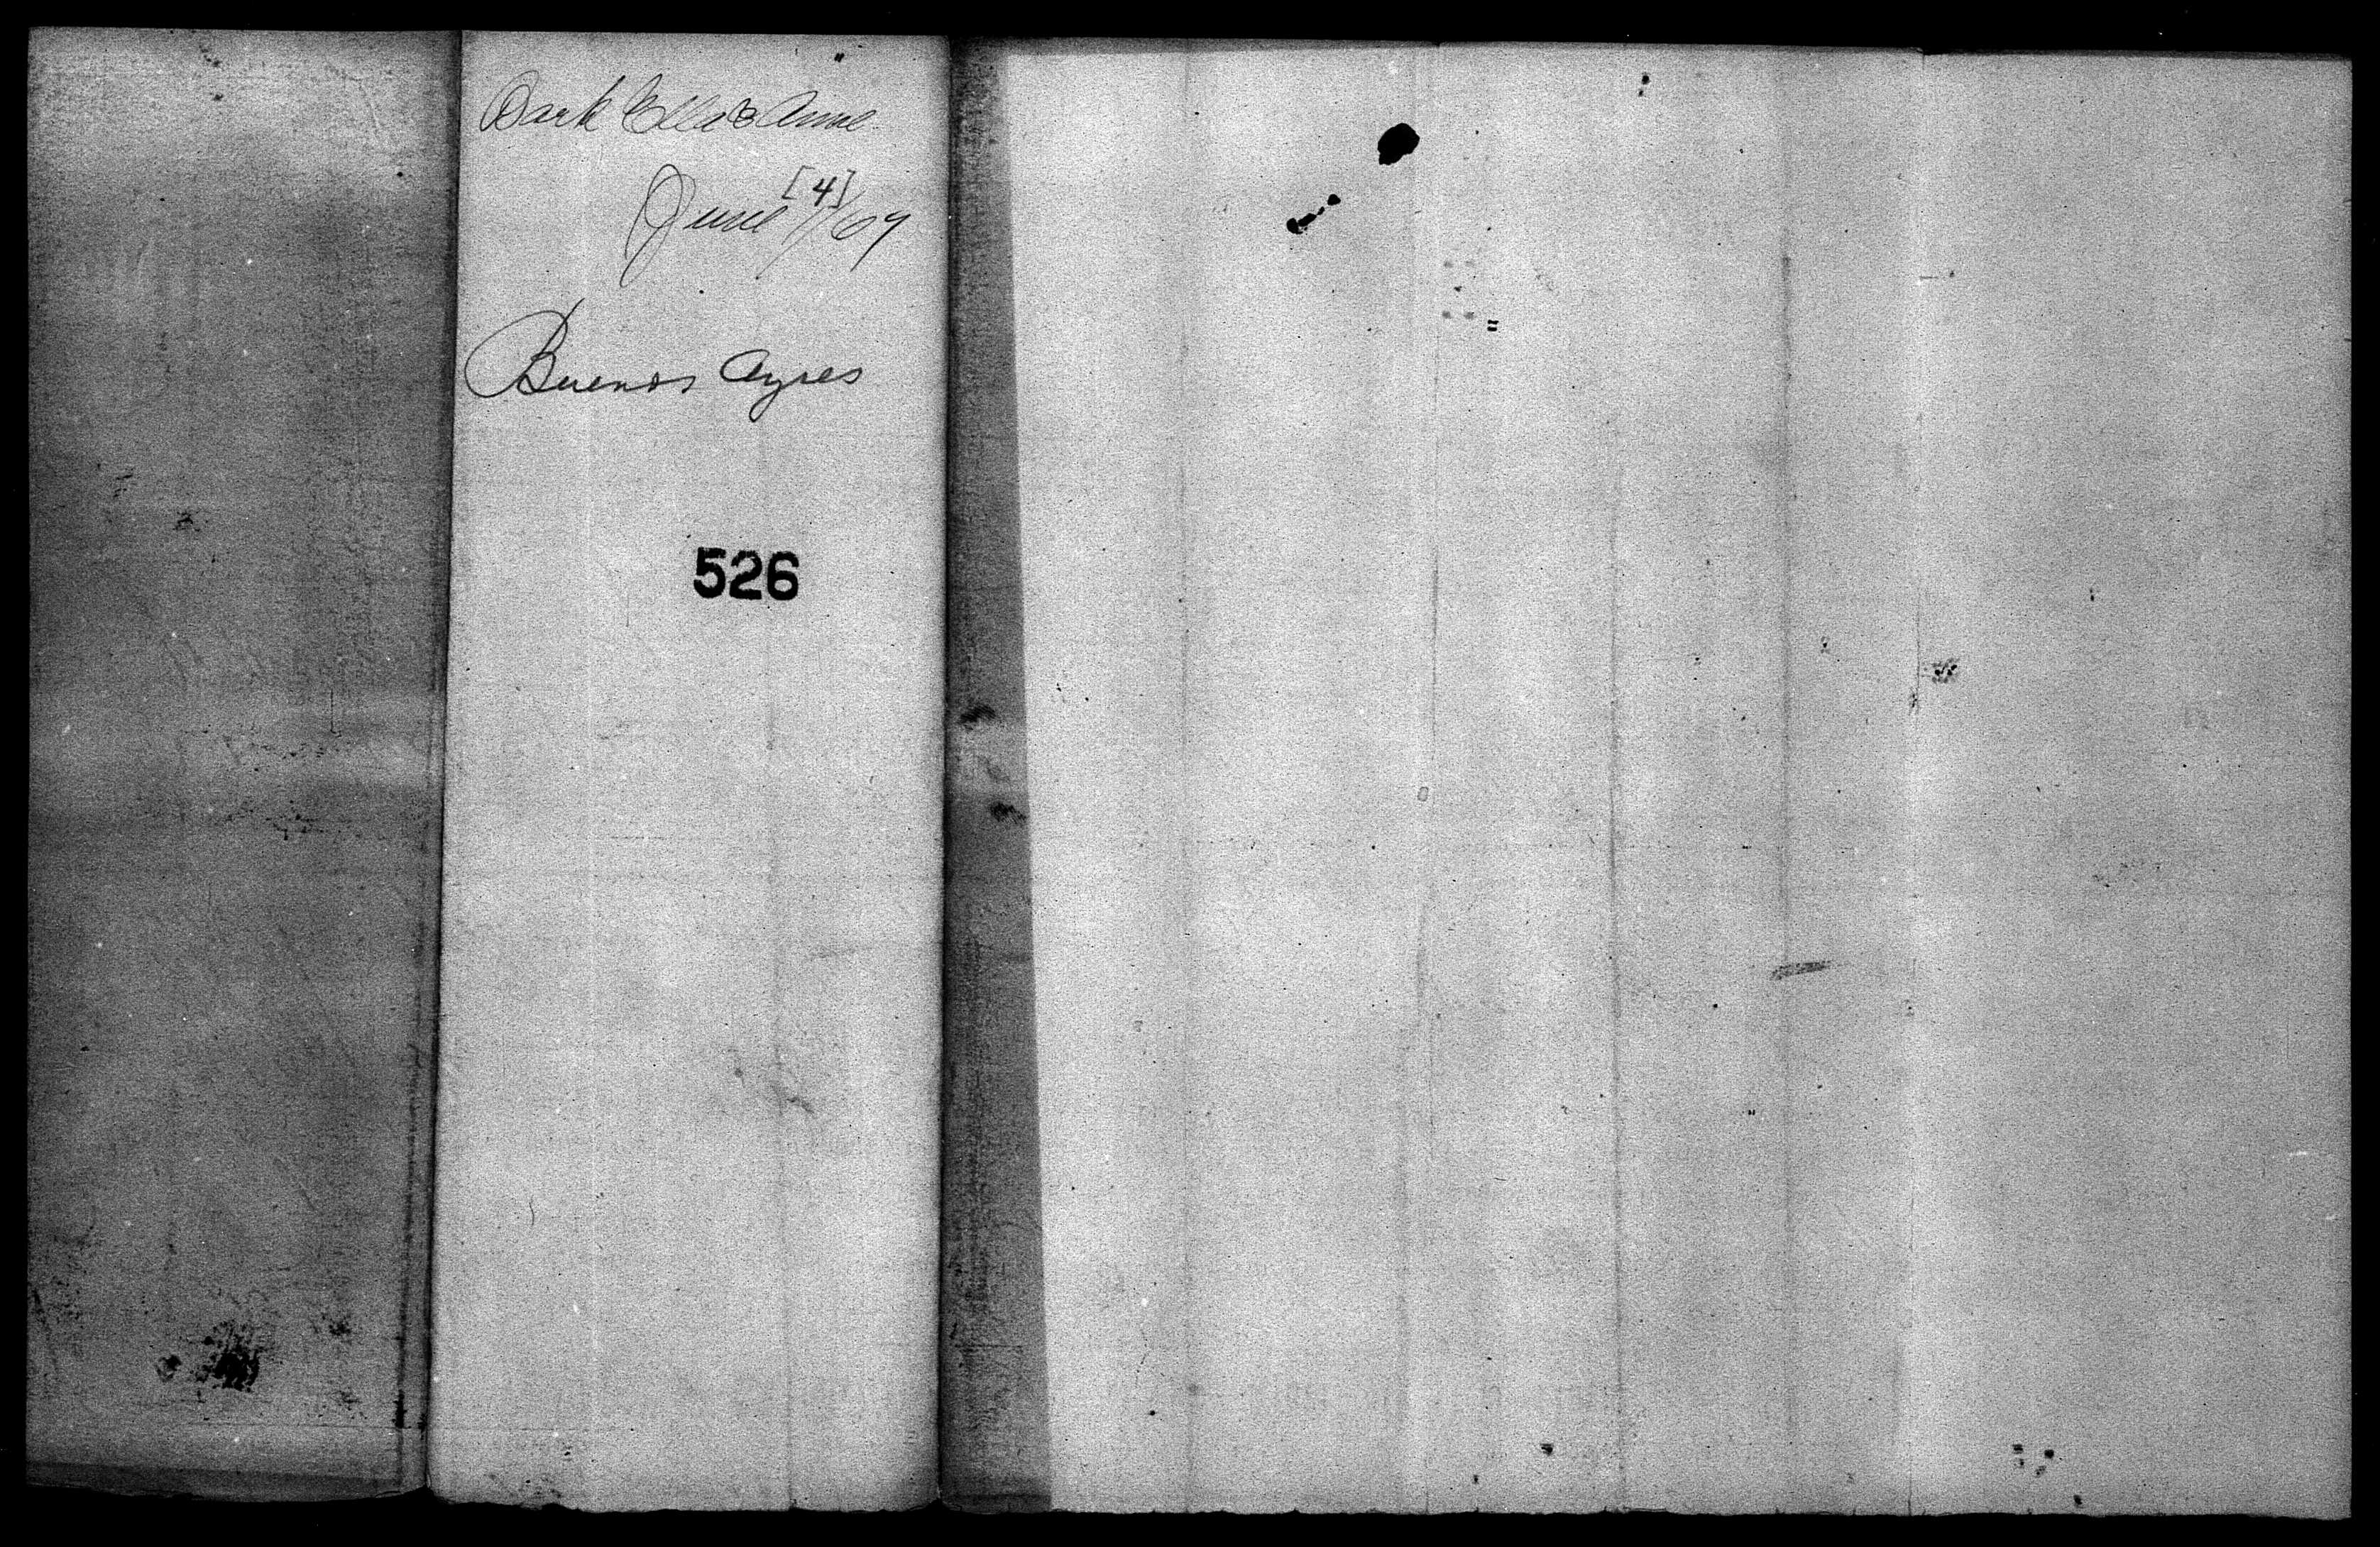 Bark Ella & Anne
June [4]/69
Buenos Ayres
526